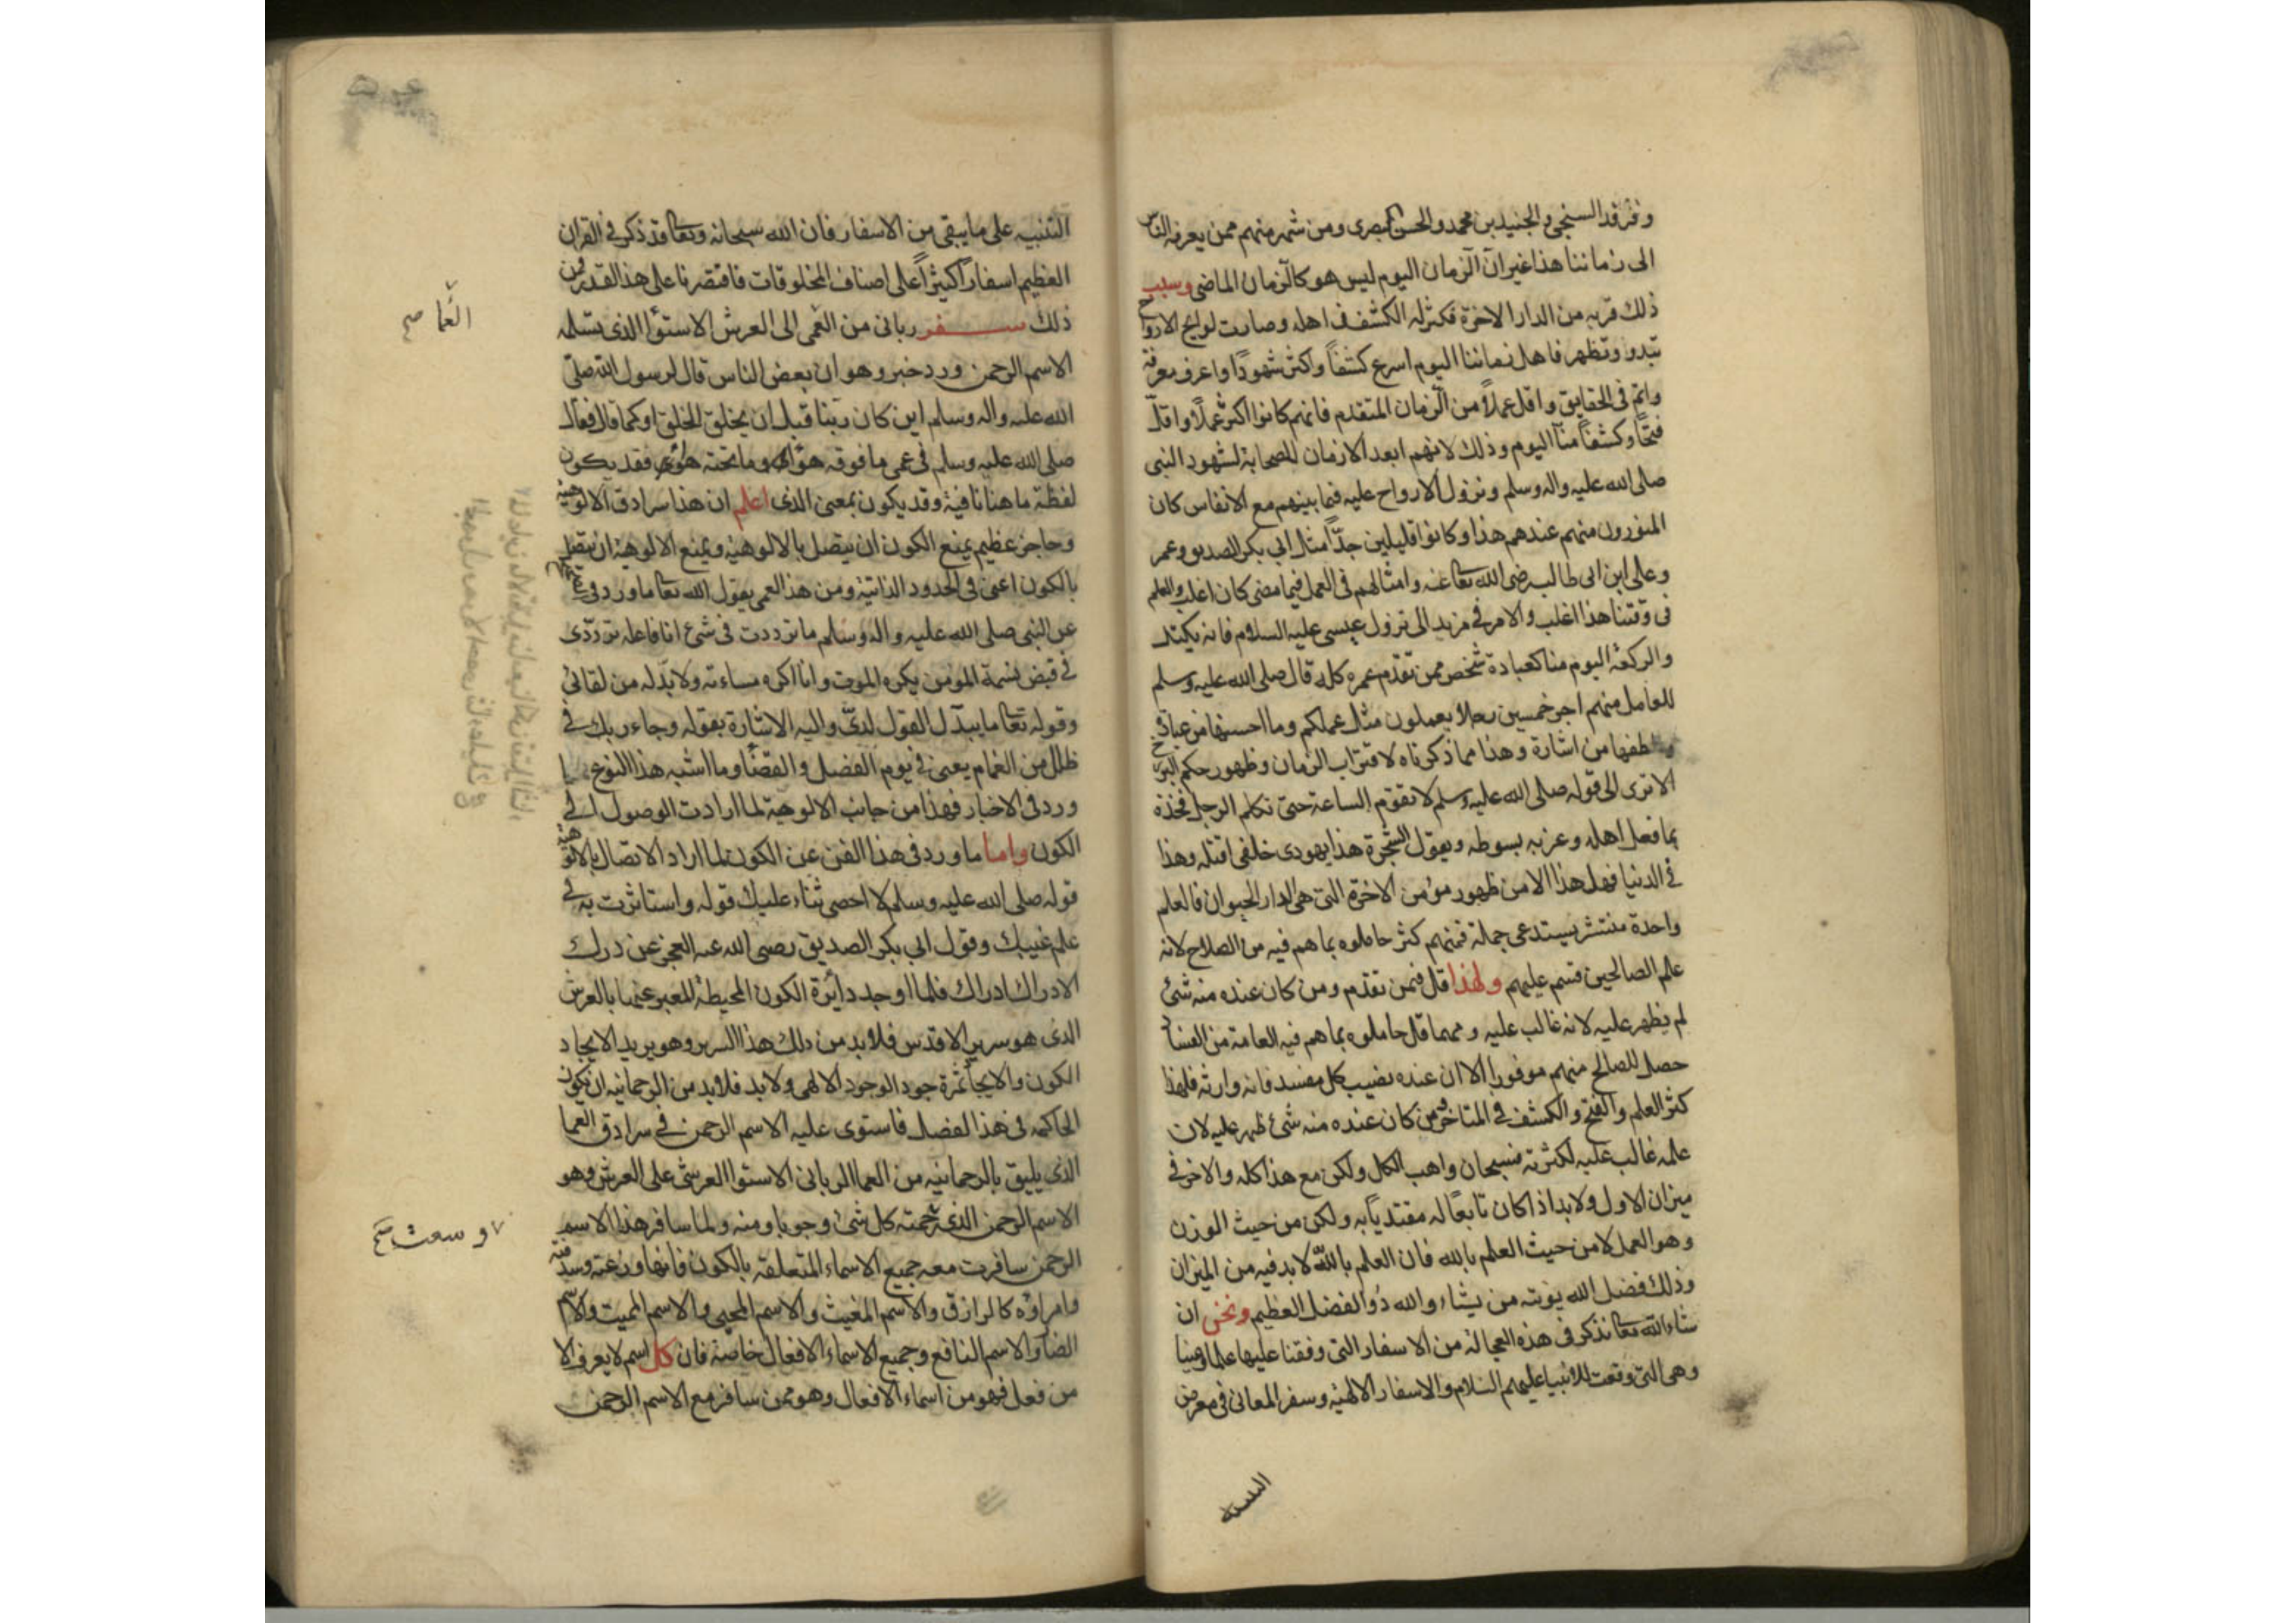 وفرقد السنجى والجنيد بن محمد والحسن البصرى ومن شهر منهم ممن يعرفه الناس
الى زماننا هذا غير ان الزمان اليوم ليس هو كالزمان الماضى وسبب
ذلك قربه من الدار الاخرة فكثر له الكشف فى اهله وصارت لوايح الارواح
تبدو وتظهر فاهل زماننا اليوم اسرع كشفاً واكثر شهوداً واعرف معرفة
واتم فى الحقايق واقل عملاً من الزمان المتقدم فانهم كانوا اكثر عملاً واقل
فتحاً وكشفاً منا اليوم وذلك لانهم ابعد الازمان للصحابة لشهود النبى
صلى الله عليه واله وسلم ونزول الارواح عليه فيما بينهم مع الانفاس كان
المنورون منهم عندهم هذا وكانوا قليلين جداً مثل ابى بكر الصديق وعمر
وعلى ابن ابى طالب رضى الله تعا عنه وامثالهم فى العمل فيما مضى كان اغلب والعلم
فى وقتنا هذا اغلب والامر فى مزيد الى نزول عيسى عليه السلام فانه يكثر
والركعة اليوم منا كعبادة شخص ممن تقدم عمره كله قال صلى الله عليه وسلم
للعامل منهم اجر خمسين رجلا يعملون مثل عملكم وما احسنها من عبارة
والطفها من اشارة وهذا مما ذكرناه لاقتراب الزمان وظهور حكم البرزخ
الا ترى الى قوله صلى الله عليه وسلم لا تقوم الساعة حتى تكلم الرجل فخذه
بما فعل اهله وعزبه بسوطه ويقول الشجرة هذا يهودى خلفى اقتله وهذا
فى الدنيا فهل هذا الا من ظهور مؤمن الاخرة التى هى الدار الحيوان فالعلم
واحدة منتشر يستدعى جملة فمنهم كثر حاملوه بما هم فيه من الصلاح لانه
علم الصالحين قسم عليهم ولهذا قل فمن تقدم ومن كان عنده منه شئ
لم يظهر عليه لانه غالب عليه ومهما قل حاملوه بما هم فيه العامة من الفساد
حصل للصالح منهم موفورا الا ان عنده نصيب كل مفسد فانه وارثه فلهذا
كثر العلم والفتح والكشف فى المتاخر فمن كان عنده منه شئ ظهر عليه لان
علمه غالب عليه لكثرته فسبحان واهب الكل ولكن مع هذا كله والاخر فى
ميزان الاول ولا بد اذا كان تابعاً له مقتدياً به ولكن من حيث الوزن
وهو العمل لا من حيث العلم بالله فان العلم بالله لا بد فيه من الميزان
وذلك فضل الله يؤته من يشاء والله ذو الفضل العظيم ونحن ان
شاء الله تعا نذكر فى هذه العجالة من الاسفار التى وفقنا عليها علما وعينا
وهى التى وقعت للانبيا عليهم السلام والاسفار الالهية وسفر المعانى فى معرض
التنبيه
التنبيه على ما يبقى من الاسفار فان الله سبحانه وتعا قد ذكر فى القران
العظيم اسفاراً كثيراً على اصناف المخلوقات فاقتصرنا على هذا القدر فمن
ذلك سفر ربانى من العمى الى العرش الاستوا الذى تسلمه
الاسم الرحمن ورد خبر وهو ان بعض الناس قال لرسول الله صلى
الله عليه واله وسلم اين كان ربنا قبل ان يخلق الخلق او كما قال فقال
صلى الله عليه وسلم فى عمى ما فوقه هوا وما تحته هوا فقد يكون
لفظة ما هنا نافية وقد يكون بمعنى الذى اعلم ان هذا سرادق الالوهية
وحاجز عظيم يمنع الكون ان يتصل بالالوهية ويمنع الالوهية ان يتصل
بالكون اعنى فى الحدود الذاتية ومن هذ العمى يقول الله تعا ما ورد فى
عن النبى صلى الله عليه واله وسلم ما ترددت فى شئ انا فاعله ترددى
فى قبض نسمة المؤمن يكره الموت وانا اكره مساءته ولا بد له من لقائى
وقوله تعا ما يبدل القول لدى واليه الاشارة بقوله وجاء ربك فى
ظلل من الغمام يعنى فى يوم الفصل والقضا وما اشبه هذا النوع
ورد فى الاخبار فهذا من جانب الالوهية لما ارادت الوصول الى
الكون واما ما ورد فى هذا الفن عن الكون لما اراد الاتصال بالالوهية
قوله صلى الله عليه وسلم لا احصى ثناء عليك قوله واستاثرت به فى
علم غيبك وقول ابى بكر الصديق رضى الله عنه العجز عن درك
الادراك ادراك فلما اوجد دائرة الكون المحيطة المعبر عنها بالعرش
الذى هو سرير الاقدس فلا بد من ذلك هذا السرير وهو يريد الايجاد
الكون والايجاد ثمرة جود الوجود الالهى ولا بد فلا بد من الرحمانيه ان يكون
الحاكمه فى هذا الفصل فاستوى عليه الاسم الرحمن فى سرادق العما
الذى يليق بالرحمانيه من العما الربانى الاستوا العرشى على العرش وهو
الاسم الرحمن الذى رحمته كل شئ وجوبا ومنه ولما سافر هذا الاسم
الرحمن سافرت معه جميع الاسماء المتعلقه بالكون فانها وزعته وسدنته
وامراؤه كالرازق والاسم المغيث والاسم المحيى والاسم المميت والاسم
الضار والاسم النافع وجميع الاسماء الافعال خاصة فان كل اسم لا يعرف الا
من فعل فهو من اسماء الافعال وهو ممن سافر مع الاسم الرحمن
العما صح
وسعت صح